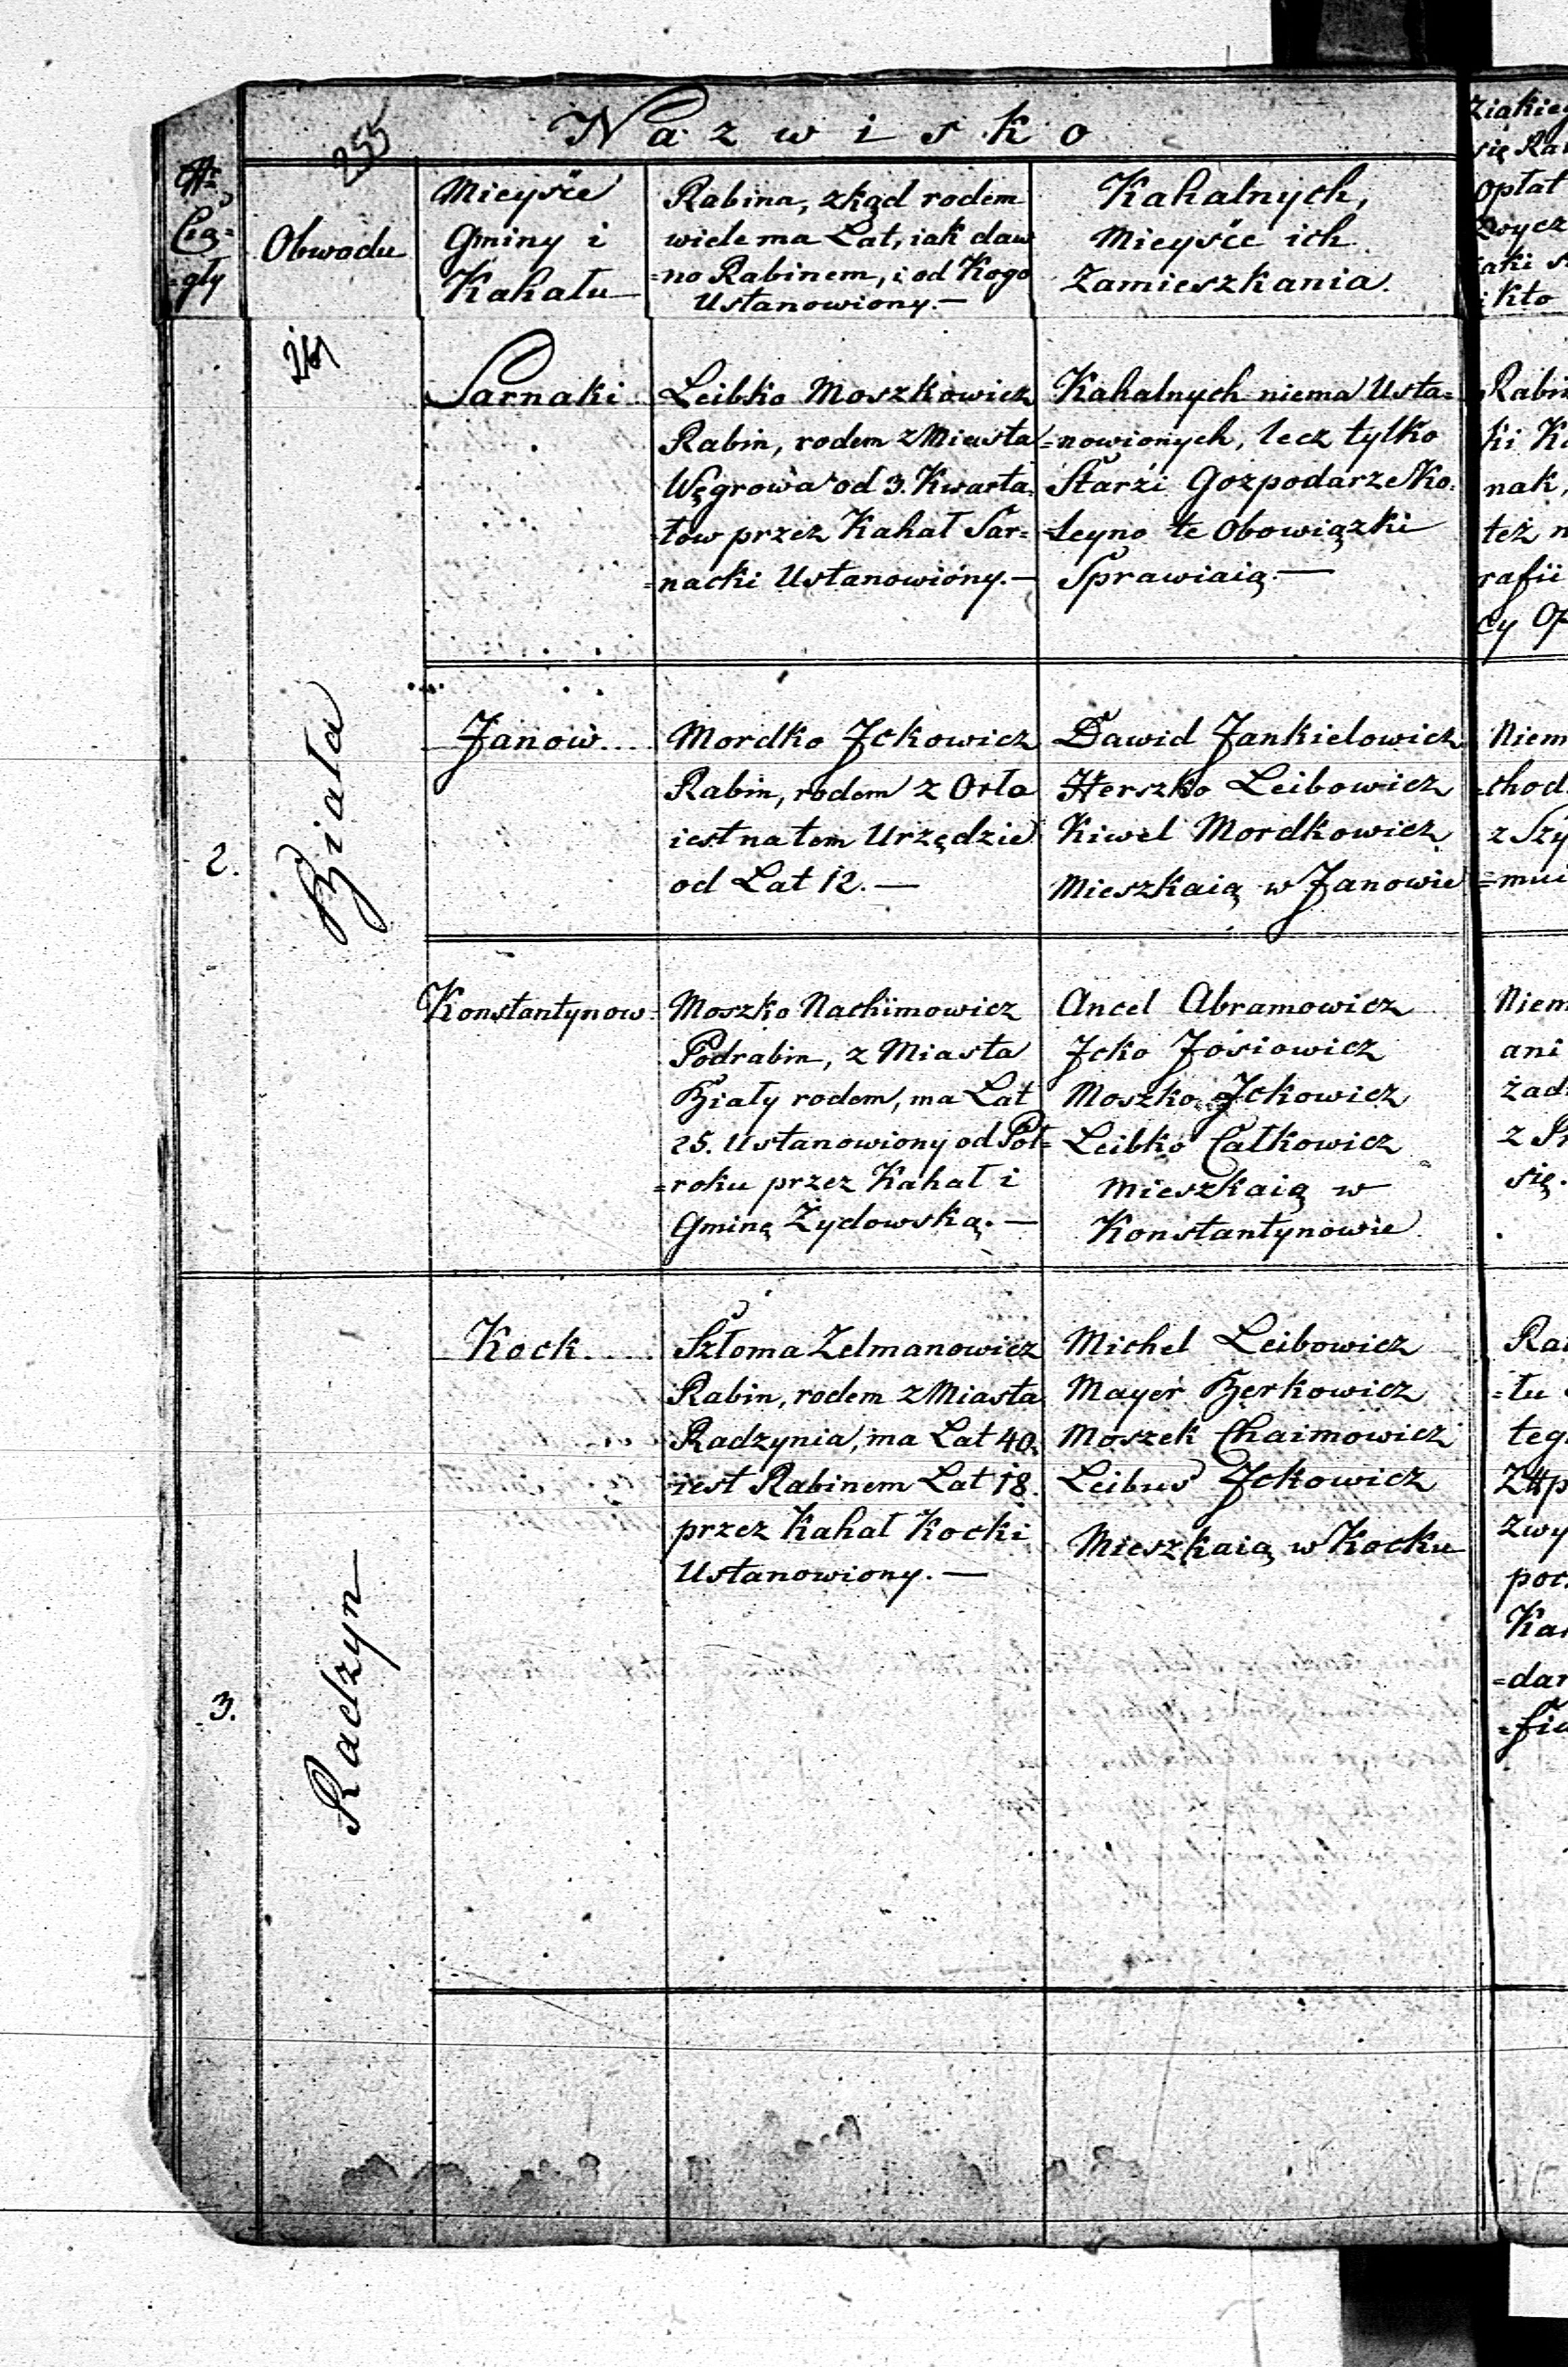 255
Nazwisko
Nr
Cią=
=gły
Obwodu
Mieysce
Gminy i
Kahału
Rabina, zkąd rodem
wiele ma Lat, iak daw
=no Rabinem, i od Kogo
Ustanowiony.—
Kahalnych,
Mieysce ich
Zamieszkania.
2.
Biała
Sarnaki
Leibko Moszkowicz
Rabin, rodem z Miasta
Węgrowa od 3. Kwarta=
=łow przez Kahał Sar=
=nacki Ustanowiony.—
Kahalnych niema Usta=
=nowionych, lecz tylko
Starzi Gozpodarze Ko=
=leyno te Obowiązki
Sprawiaią.—
Janow....
Mordko Jckowicz
Rabin, rodem z Orla
iest na tem Urzędzie
od Lat 12.—
Dawid Jankielowicz
Herszko Leibowicz
Kiwel Mordkowicz
Mieszkaią w Janowie
Konstantynow
Moszko Nachimowicz
Podrabin, z Miasta
Biały rodem, ma Lat
25. Ustanowiony od Poł=
=roku przez Kahał i
Gminę Żydowską.—
Ancel Abramowicz
Jcko Josiowicz
Moszko Jckowicz
Leibko Całkowicz
Mieszkaią w
Konstantynowie
3.
Radzyn
Kock....
Szłoma Zelmanowicz
Rabin, rodem z Miasta
Radzynia, ma Lat 40.
iest Rabinem Lat 18.
przez Kahał Kocki
Ustanowiony.—
Michel Leibowicz
Mayer Berkowicz
Moszek Chaimowicz
Leibus Jckowicz
Mieszkaią w Kocku